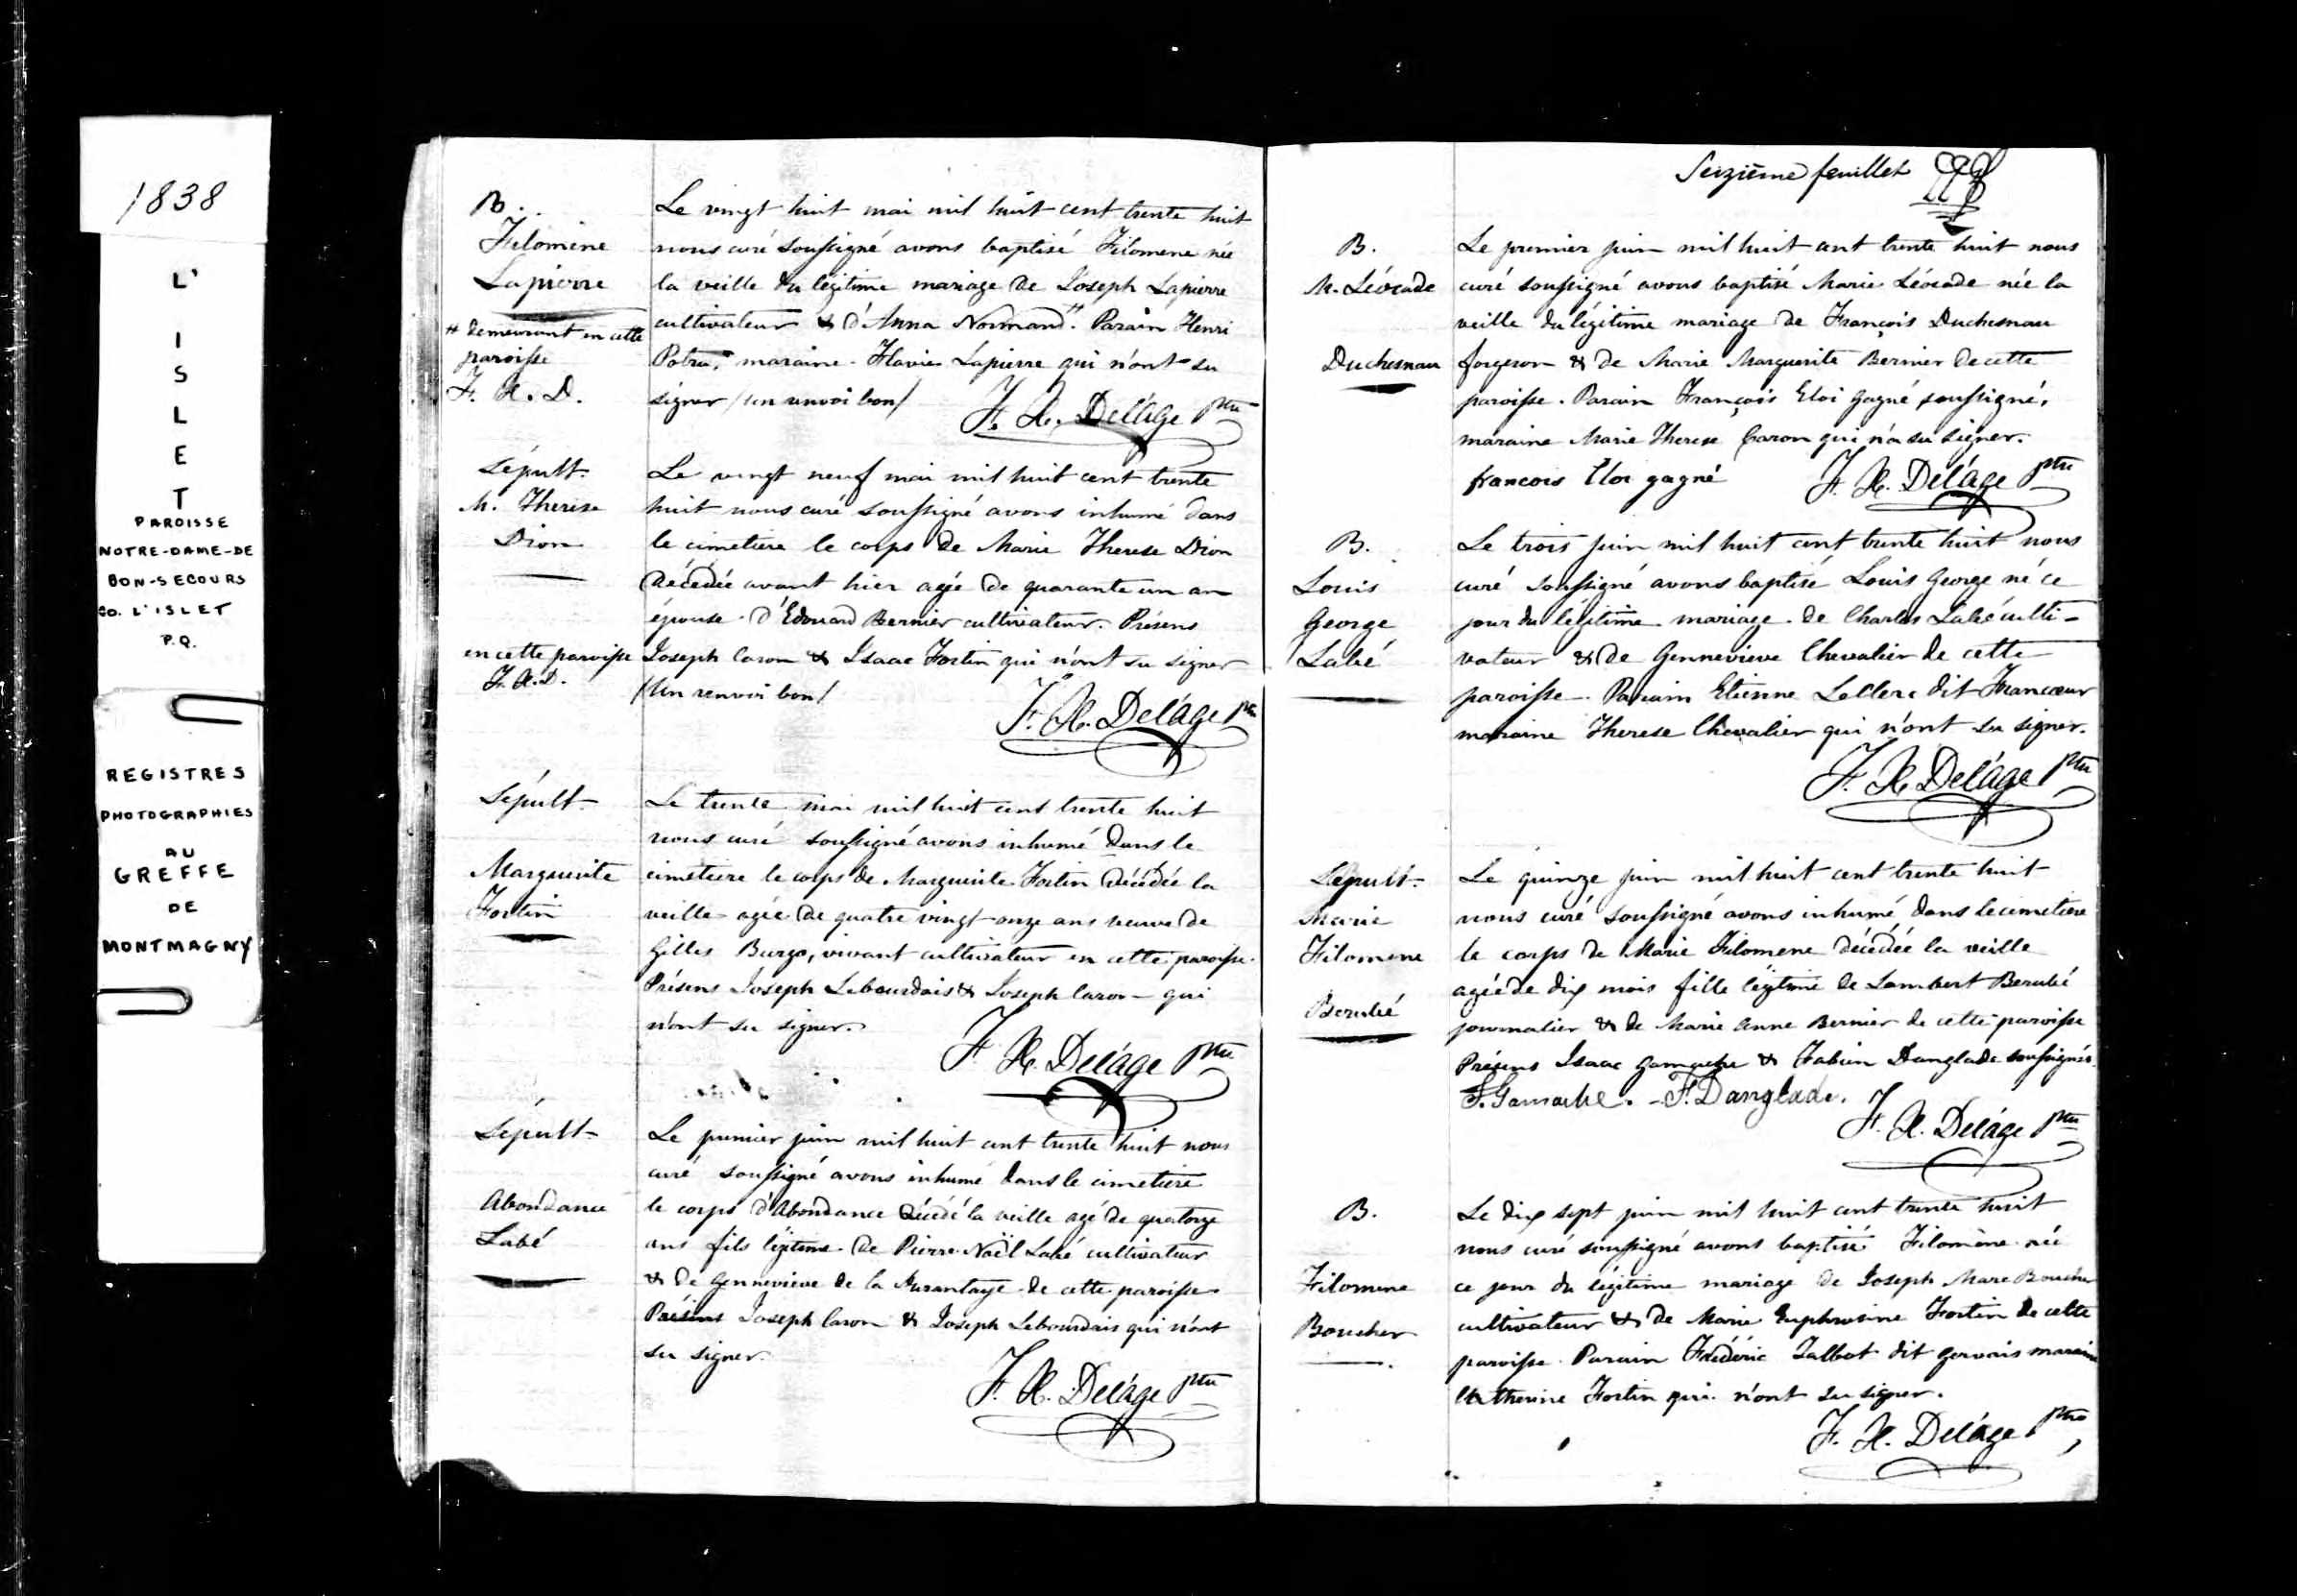 1838
L'
I
S
L
E
T
PAROISSE
NOTRE-DAME-DE
BON-SECOURS
CO. L'ISLET
P.Q.
REGISTRES
PHOTOGRAPHIES
AU
GREFFE
DE
MONTMAGNY
B.
Filomène
Lapierre
# demeurant en cette
paroisse
F. X. D.
Le vingt huit mai mil huit cent trente huit
nous curé soussigné avons baptisé Filomene née
la veille du légitime mariage de Joseph Lapierre
cultivateur & d'Anna Normand.# Parain Henri
maraine Flavie Lapierre qui n'ont su
signer /un renvoi bon/ F. X. Delâge ptre
Sépult.
M. Therese
Dion
en cette paroisse
F. X. D.
Le vingt neuf mai mil huit cent trente
huit nous curé soussigné avons inhumé dans
le cimetiere le corps de Marie Therese Dion
décédée avant hier agée de quarante un an
épouse d'Edouard Bernier cultivateur. Présens
Joseph Caron & Isaac Fortin qui n'ont su signer
/Un renvoi bon/
F. X. Delâge ptre
Sépult.
Marguerite
Fortin
Le trente mai mil huit cent trente huit
nous curé soussigné avons inhumé dans le
cimetiere le corps de Marguerite Fortin décédée la
veille agée de quatre vingt onze ans veuve de
Gilles Burgo, vivant cultivateur en cette paroisse.
Présens Joseph Lebourdais & Joseph Caron qui
n'ont su signer.
F. X. Delâge ptre
Sépult
Abondance
Labé
Le premier juin mil huit cent trente huit nous
curé soussigné avons inhumé dans le cimetiere
le corps d'Abondance décédé la veille agé de quatorze
ans fils légitime de Pierre Noël Labé cultivateur
& de Gennevieve de la Durantaye de cette paroisse
Présens Joseph Caron & Joseph Lebourdais qui n'ont
su signer.
F. X. Delâge ptre
Seizième feuillet
B.
M. Léocade
Duchesnau
Le premier juin mil huit cent trente huit nous
curé soussigné avons baptisé Marie Léocade née la
veille du légitime mariage de François Duchesnau
forgeron & de Marie Marguerite Bernier de cette
paroisse. Parain François Eloi Gagné soussigné,
maraine Marie Therese Caron qui n'a su signer.
francois Eloi gagné F. X. Delâge ptre
B.
Louis
George
Labé
Le trois juin mil huit cent trente huit nous
curé soussigné avons baptisé Louis George né ce
jour du légitime mariage de Charles Labé culti-
vateur & de Gennevieve Chevalier de cette
paroisse. Parain Etienne Leclerc dit Francœur
maraine Therese Chevalier qui n'ont su signer.
F. X. Delâge ptre
Sépult.
Marie
Filomene
Berubé
Le quinze juin mil huit cent trente huit
nous curé soussigné avons inhumé dans le cimetiere
le corps de Marie Filomene décédée la veille
agée de dix mois fille légitime de Lambert Berubé
journalier & de Marie Anne Bernier de cette paroisse
Présens Isaac Gamache & Fabien Danglade soussignés.
Gamache. F. Danglade.
F. X. Delâge ptre
B.
Filomene
Boucher
Le dix sept juin mil huit cent trente huit
nous curé soussigné avons baptisé Filomène née
ce jour du légitime mariage de Joseph Marc Boucher
cultivateur & de Marie Euphrosine Fortin de cette
paroisse. Parain Frédéric Talbot dit Gervais maraine
Catherine Fortin qui n'ont su signer.
F. X. Delâge ptre